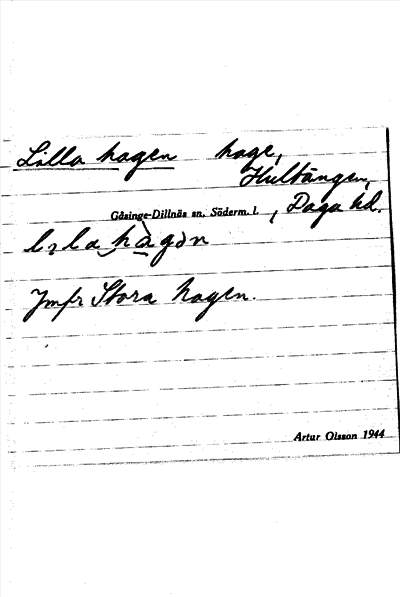 Lilla hagen hage,
Hultängen,
Gåsinge-Dillnäs sn, Söderm. l. , Daga hd.
Jmfr Stora hagen.
Artur Olsson 1944